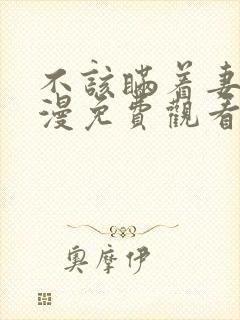 不該瞞着妻
漫免費觀看
奧摩伊